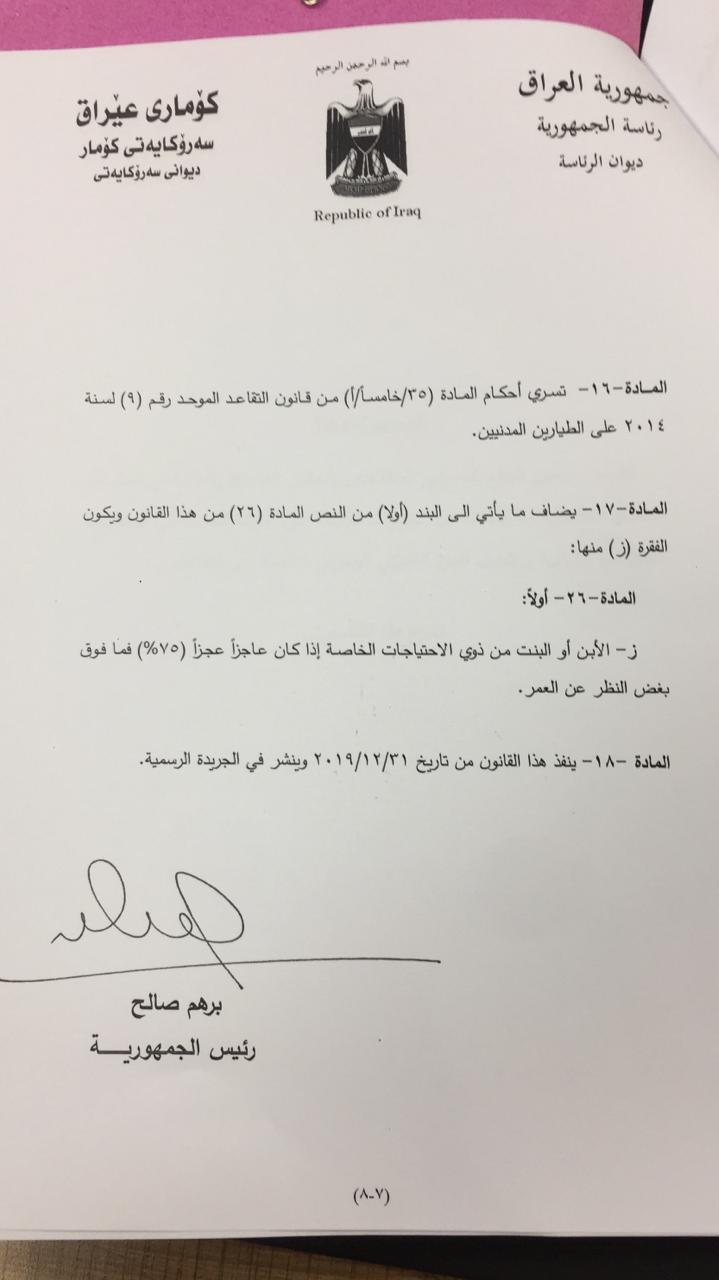 بسم الله الرحمن الرحيم
جمهورية العراق
رئاسة الجمهورية
ديوان الرئاسة
كۆماری عێراق
سەرۆكایەتی كۆمار
دیوانی سەرۆكایەتی
Republic of Iraq
المادة-١٦- تسري أحكام المادة (٣٥/خامساً/أ) من قانون التقاعد الموحد رقم (٩) لسنة
٢٠١٤ على الطيارين المدنيين.
المادة-١٧- يضاف ما يأتي الى البند (أولا) من النص المادة (٢٦) من هذا القانون ويكون
الفقرة (ز) منها:
المادة-٢٦- أولاً:
ز- الأبن أو البنت من ذوي الاحتياجات الخاصة إذا كان عاجزاً عجزاً (٧٥%) فما فوق
بغض النظر عن العمر.
المادة -١٨- ينفذ هذا القانون من تاريخ ٢٠١٩/١٢/٣١ وينشر في الجريدة الرسمية.
برهم صالح
رئيس الجمهوريـــة
(٧-٨)